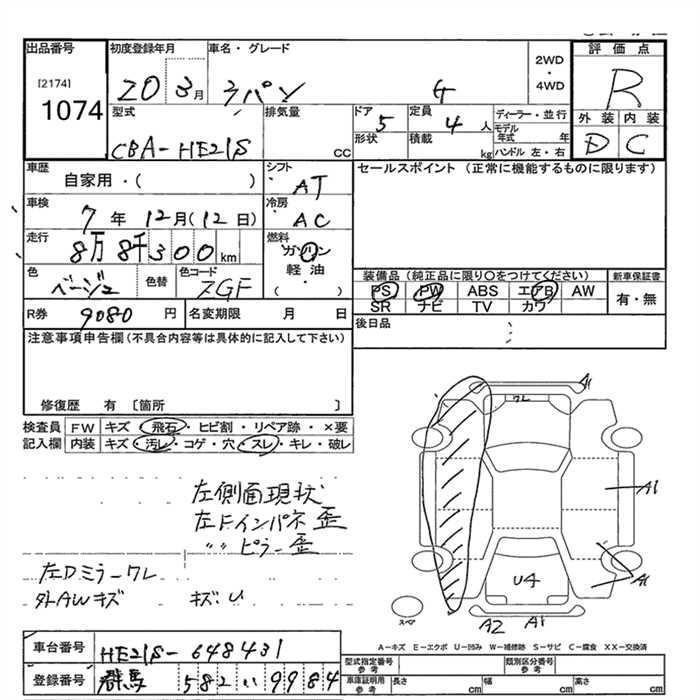 出品番号
[2174]
1074
初度登録年月
20 3月
車名・グレード
ラパン G
2WD
・
4WD
評価点
R
外装 内装
D C
型式
CBA-HE21S
排気量
cc
ドア 5
形状
定員 4 人
積載 kg
ディーラー・並行
モデル年式 年
ハンドル 左・右
車歴
自家用・( )
シフト
AT
車検
7年 12月(12日)
冷房
AC
走行
8万8千300km
燃料
ガソリン
軽油
・
( )
色
ベージュ
色替
色コード
ZGF
R券 9080 円
名変期限 月 日
セールスポイント (正常に機能するものに限ります)
装備品 (純正品に限り○をつけてください)
PS PW ABS エアB AW
SR ナビ TV カワ
新車保証書
有・無
後日品
注意事項申告欄(不具合内容等は具体的に記入して下さい)
修復歴 有 〔箇所 〕
検査員記入欄
FW キズ・飛石・ヒビ割・リペア跡・×要
内装 キズ・汚レ・コゲ・穴・スレ・キレ・破レ
左側面現状
左Fインパネ歪
〃 ピラー歪
左Dミラーワレ
外AWキズ キズ:U
A1
ワレ
A1
A1
U4
A2 A1
スペア
A-キズ E-エクボ U-凹み W-補修跡 S-サビ C-腐食 XX-交換済
車台番号 HE21S-648431
登録番号 群馬 582 い 9984
型式指定番号
参考
類別区分番号
参考
車庫証明用
参考
長さ cm
幅 cm
高さ cm